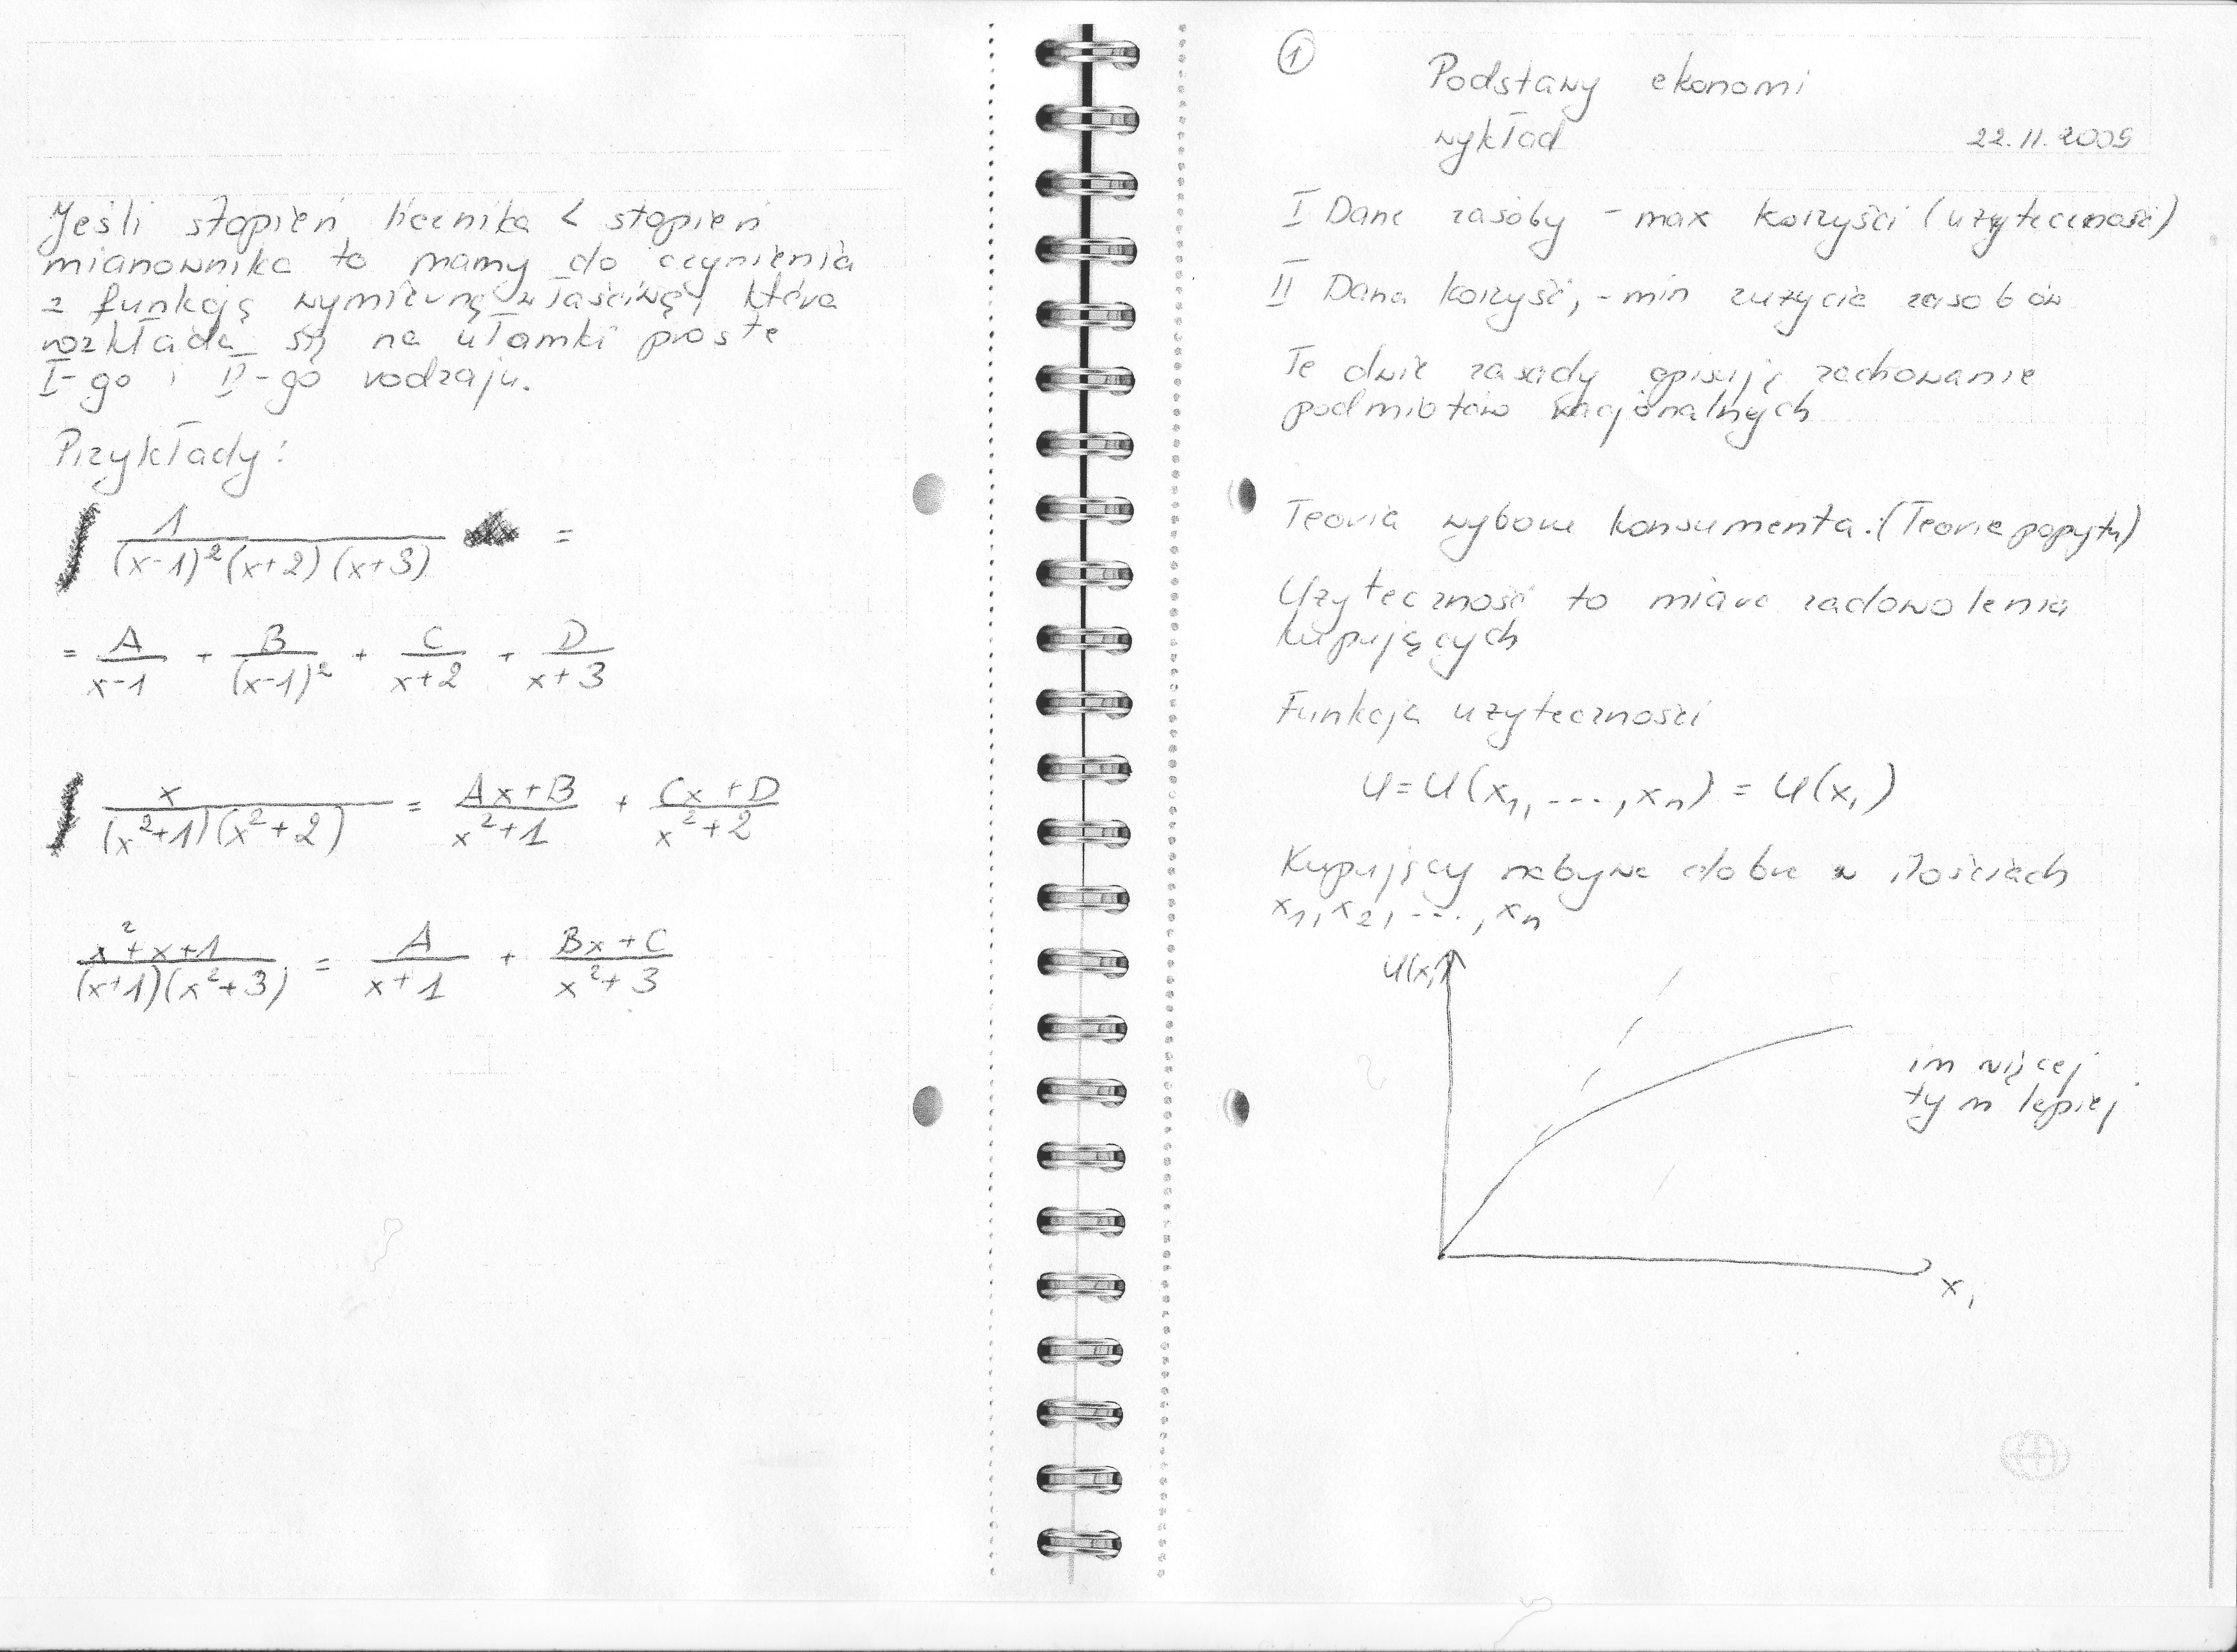 Jeśli stopień licznika < stopień
mianownika to mamy do czynienia
z funkcją wymierną właściwą, która
rozkłada się na ułamki proste
I-go i II-go rodzaju.
Przykłady:
1/((x-1)²(x+2)(x+3)) =
= A/(x-1) + B/(x-1)² + C/(x+2) + D/(x+3)
x/((x²+1)(x²+2)) = (Ax+B)/(x²+1) + (Cx+D)/(x²+2)
(x²+x+1)/((x+1)(x²+3)) = A/(x+1) + (Bx+C)/(x²+3)
1
Podstawy ekonomi
wykład
22.11.2009
I Dane zasoby - max korzyści (użyteczność)
II Dana korzyść, - min zużycie zasobów
Te dwie zasady opisują zachowanie
podmiotów racjonalnych
Teoria wyboru konsumenta: (Teoria popytu)
Użyteczność to miara zadowolenia
kupujących
Funkcja użyteczności
U=U(x₁, ---, xₙ) = U(xᵢ)
Kupujący nabywa dobra w ilościach
x₁, x₂, ---, xₙ
U(xᵢ)
im więcej
tym lepiej
xᵢ